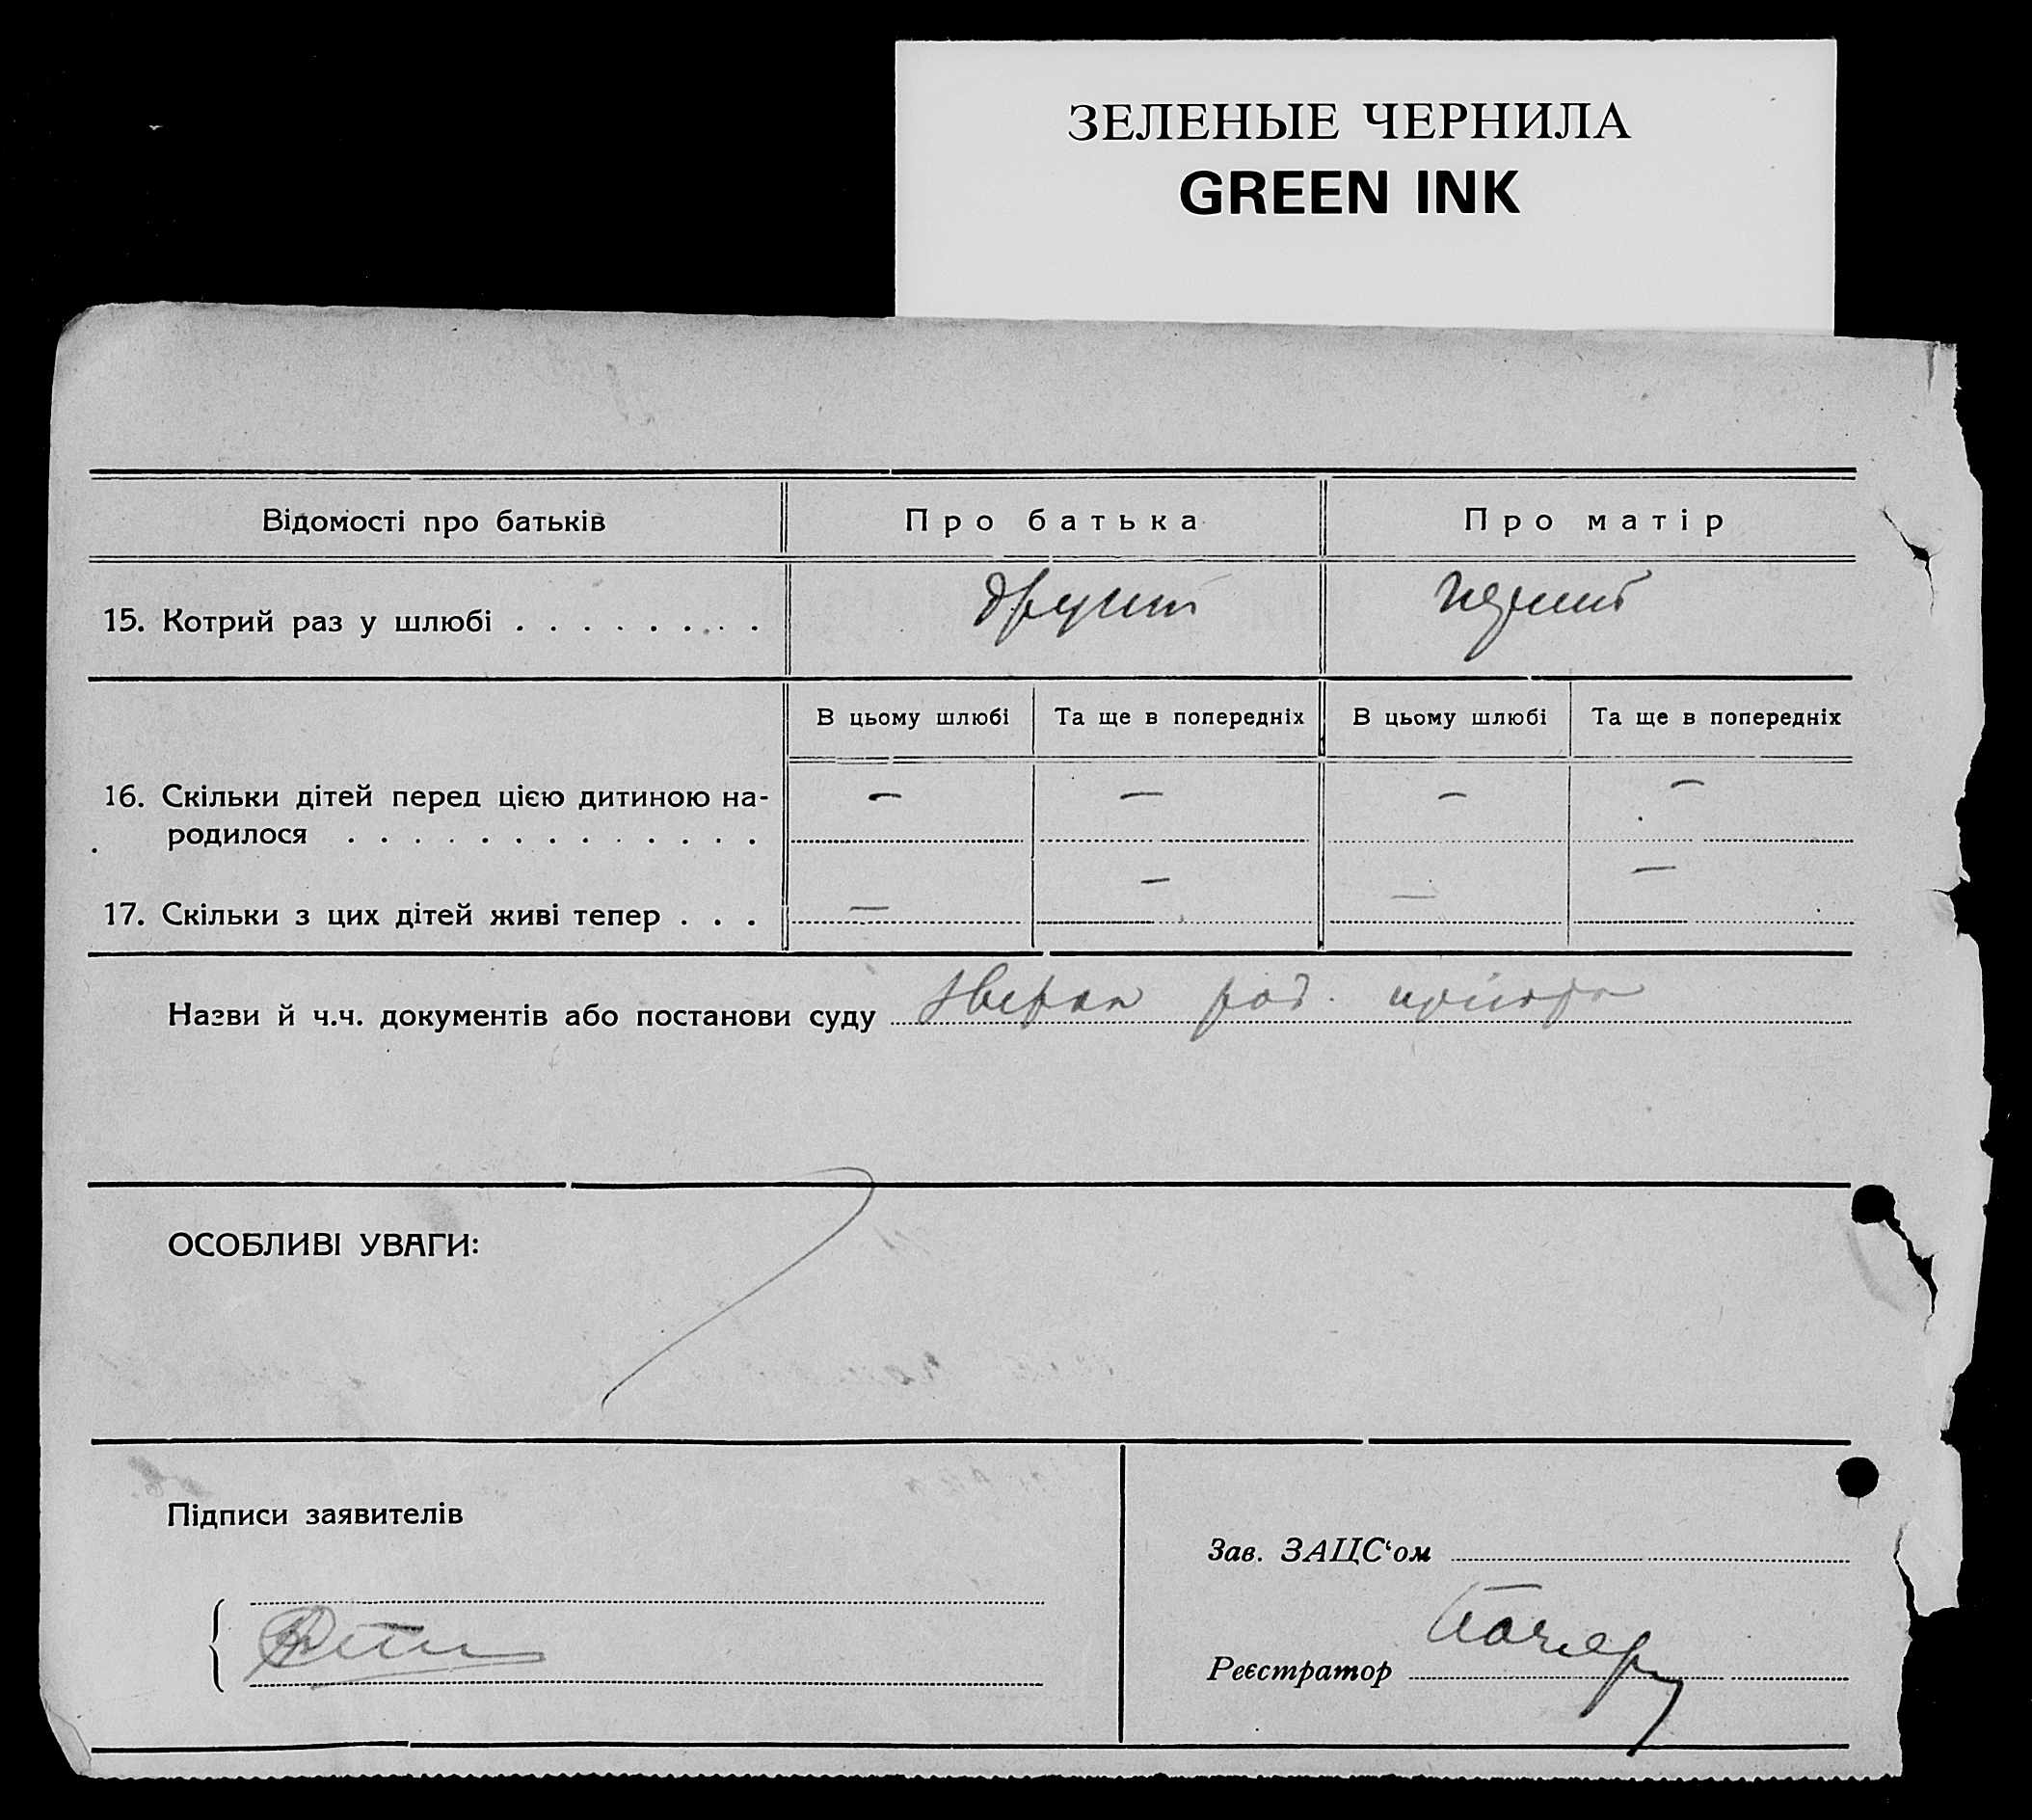 ЗЕЛЕНЫЕ ЧЕРНИЛА
GREEN INK
Відомості про батьків
Про батька
Про матір
15. Котрий раз у шлюбі . . . . . . . .
другий
перший
В цьому шлюбі
Та ще в попередніх
В цьому шлюбі
Та ще в попередніх
16. Скільки дітей перед цією дитиною на-
— — — —
родилося . . . . . . . . . . . . .
17. Скільки з цих дітей живі тепер . . .
— — — —
Назви й ч.ч. документів або постанови суду
ОСОБЛИВІ УВАГИ:
Підписи заявителів
Зав. ЗАЦС‘ом
Реєстратор